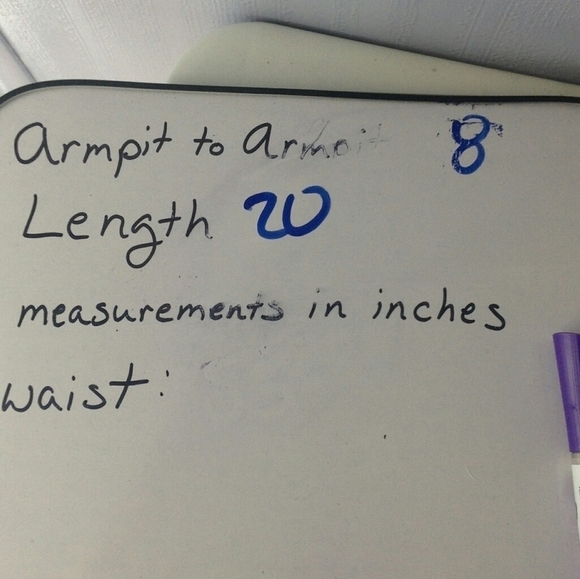 Armpit to Armpit 8
Length 20
measurements in inches
waist: